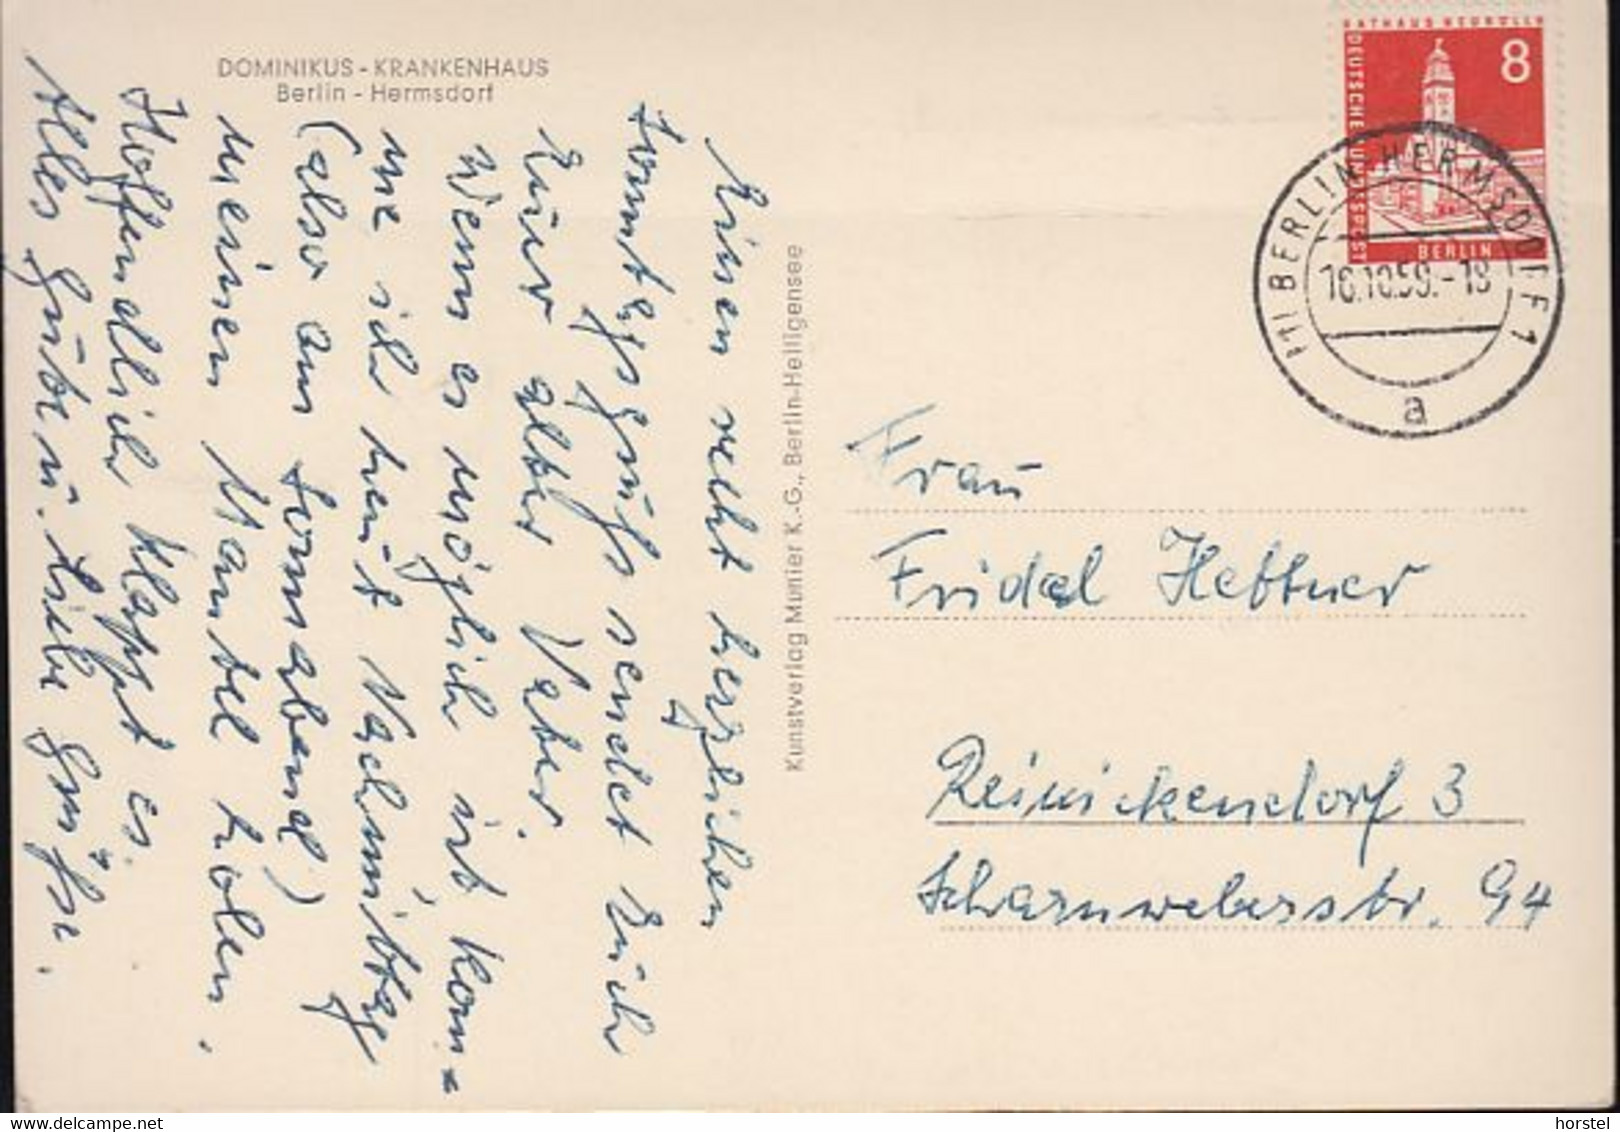 DOMINIKUS - KRANKENHAUS
Berlin - Hermsdorf
Einen recht herzlichen
Sonntagsgruß sendet Euch
Euer alter Vater.
Wenn es möglich ist kom=
me ich heut Nachmittag
(also am Sonnabend)
meinen Mantel holen.
Hoffendlich klappt es.
Alles Gute u. Liebe Grüße.
Kunstverlag Munier K.-G., Berlin-Heiligensee
RATHAUS NEUKÖLLN
8
DEUTSCHE BUNDESPOST
BERLIN
(1) BERLIN-HERMSDORF 1
16.10.59.-18
a
Frau
Fridel Hettner
Reinickendorf 3
Scharnweberstr. 94
horstel